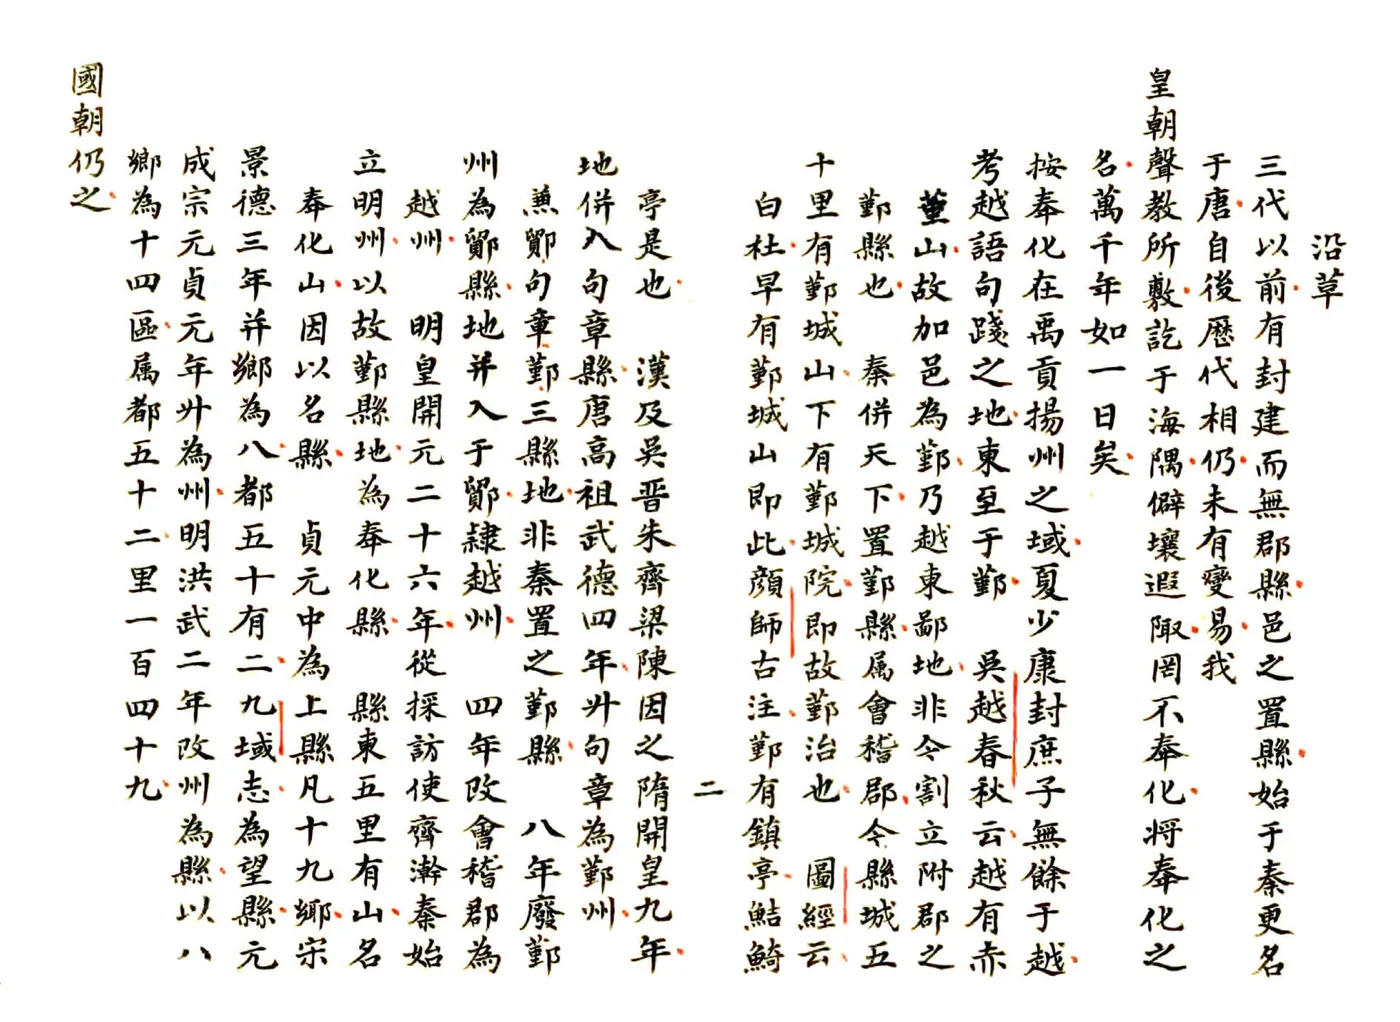 沿革
三代以前有封建而無郡縣邑之置縣始于秦更名
于唐自後歷代相仍未有變易我
皇朝聲教所敷訖于海隅僻壤遐陬罔不奉化將奉化之
名萬千年如一日矣
按奉化在禹貢揚州之域夏少康封庶子無餘于越
考越語句踐之地東至于鄞　吳越春秋云越有赤
堇山故加邑為鄞乃越東鄙地非今割立附郡之
鄞縣也　秦併天下置鄞縣属會稽郡今縣城五
十里有鄞城山下有鄞城院即故鄞治也　圖經云
白杜早有鄞城山即此顔師古注鄞有鎮亭鮚鮚
二
亭是也　漢及吳晋朱齊梁陳因之隋開皇九年
地併入句章縣唐高祖武德四年廾句章為鄞州
兼鄮句章鄞三縣地非秦置之鄞縣　八年廢鄞
州為鄮縣地并入于鄮隷越州　四年改會稽郡為
越州　明皇開元二十六年從採訪使齊澣奏始
立明州以故鄞縣地為奉化縣　縣東五里有山名
奉化山因以名縣　貞元中為上縣凡十九鄉宋
景德三年并鄉為八都五十有二九域志為望縣元
成宗元貞元年廾為州明洪武二年改州為縣以八
鄉為十四區属都五十二里一百四十九
國朝仍之